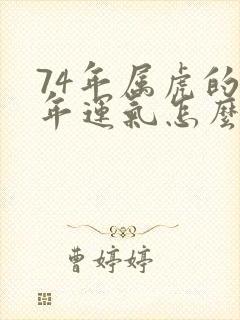 74年属虎的
年運氣怎麼
曹婷婷